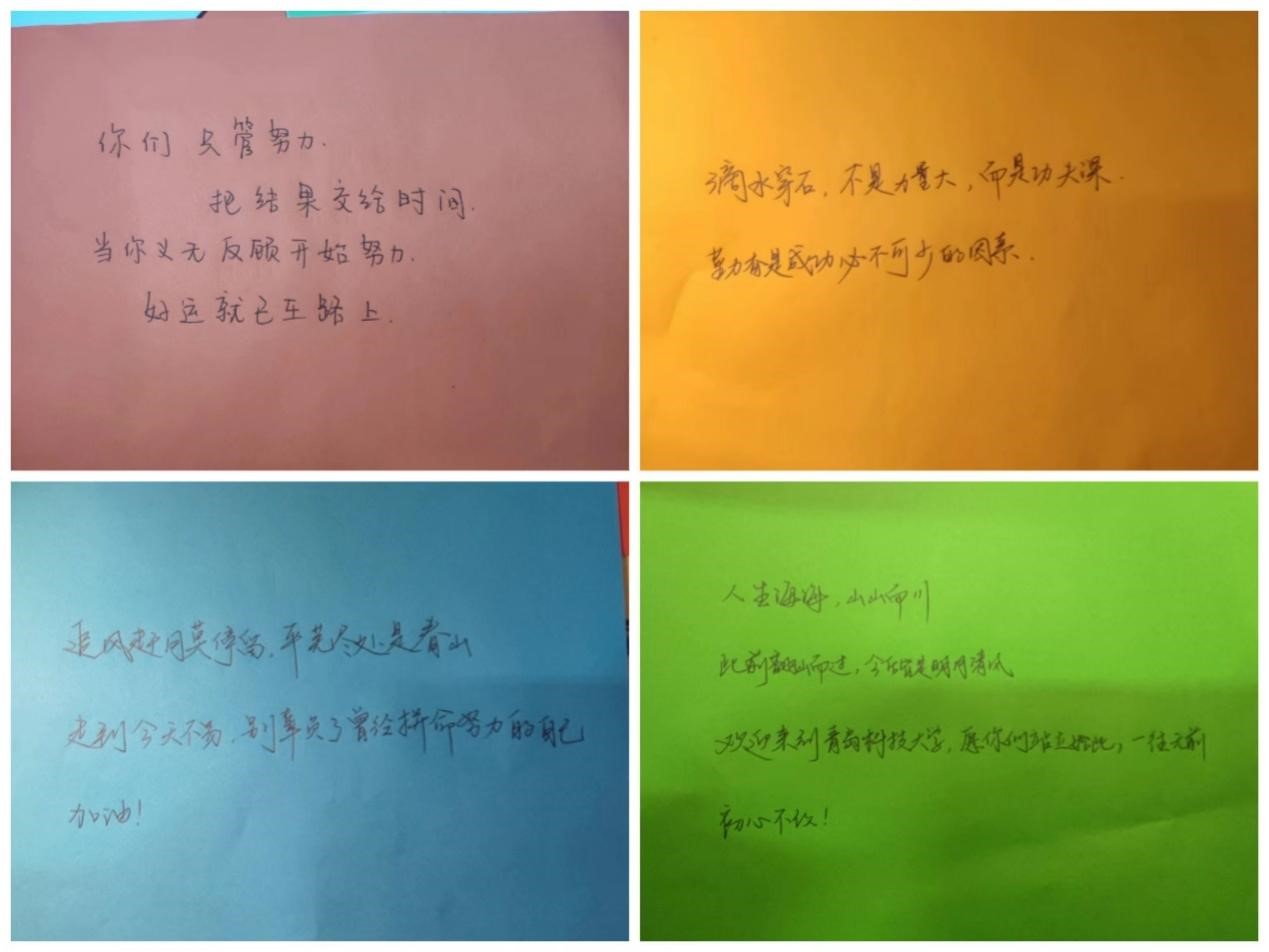 你们只管努力.
把结果交给时间.
当你义无反顾开始努力.
好运就已在路上.
滴水穿石,不是力量大,而是功夫深.
勤奋是成功必不可少的因素.
追风赶月莫停留,平芜尽处是春山
走到今天不易,别辜负了曾经拼命努力的自己
加油!
人生海海,山山而川
此前翻山而过,今后皆是明月清风
欢迎来到青岛科技大学,愿你们站立于此,一往无前
初心不改!